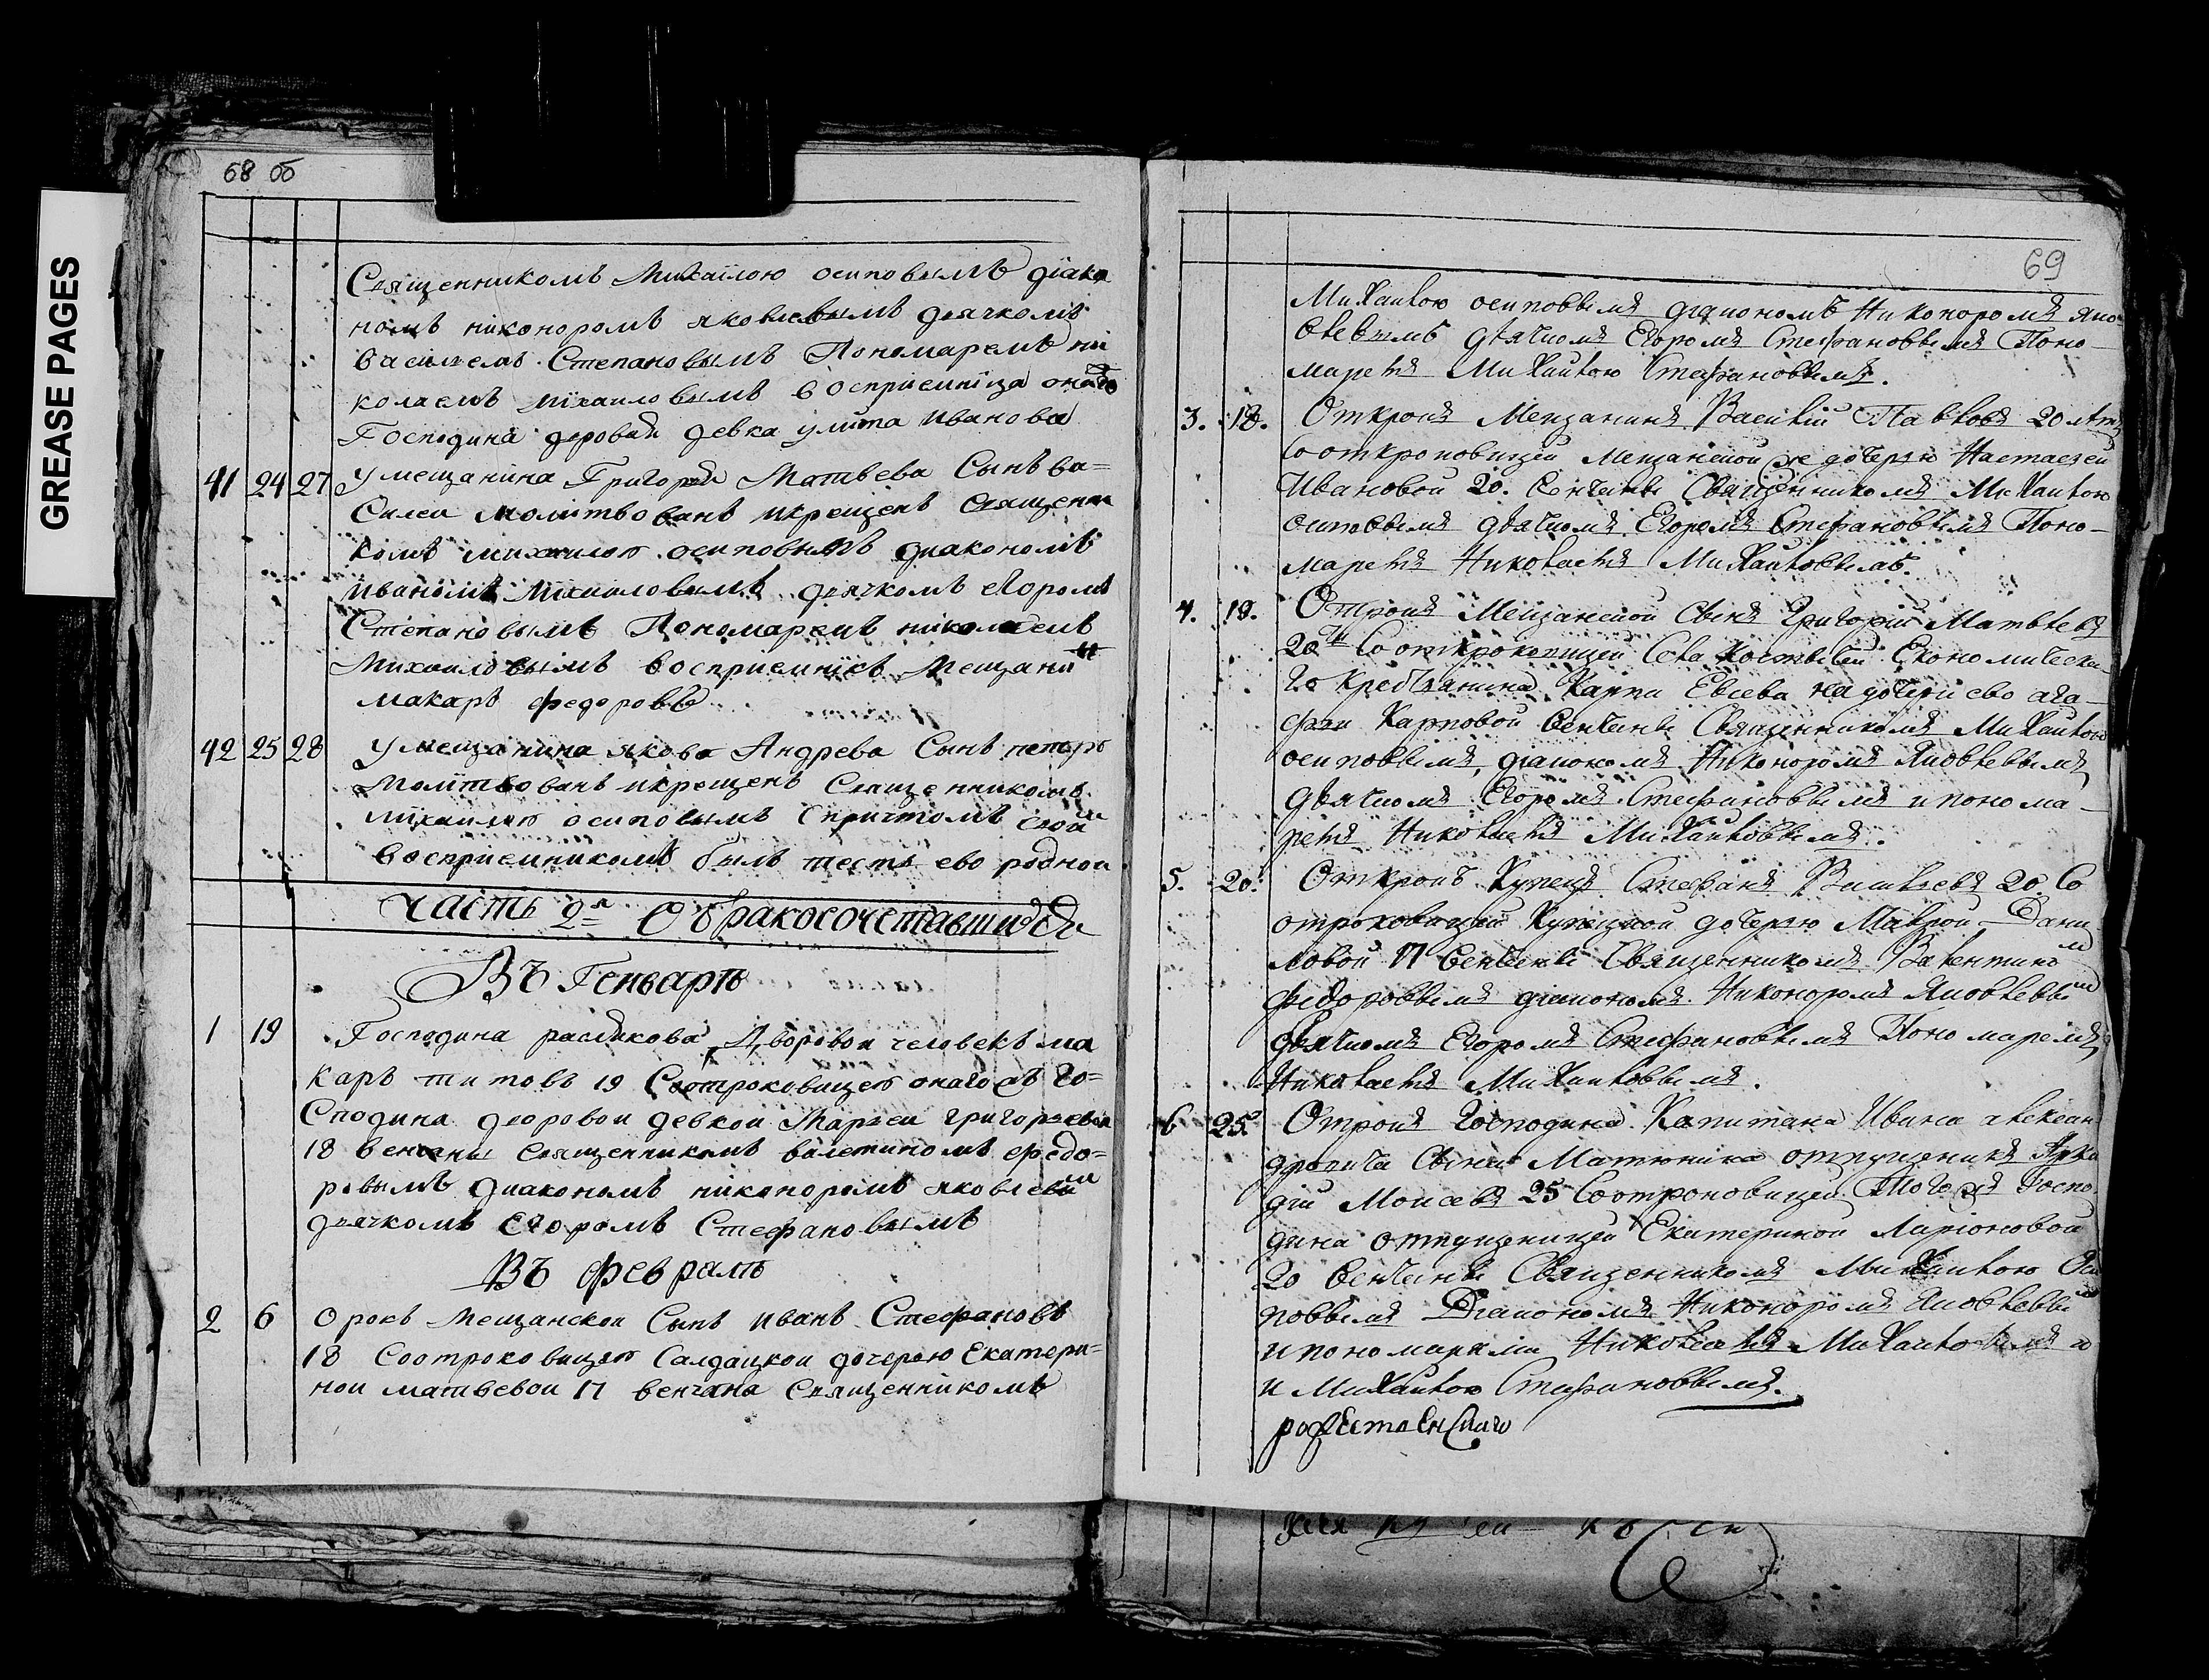 GREASE PAGES
68 об
Священникомъ Михаиломъ осиповымъ дїако
номъ никоноромъ яковлевымъ дьячкомъ
василиемъ Степановымъ Пономаремъ ни
колаемъ михаиловымъ восприемница онаго
Господина дворовая девка улита Иванова
41 24 27 У мещанина Григорья Матвеева Сынъ ва=
Силеи молитвованъ икрещенъ Священи
комъ михаилою осиповымъ диакономъ
иваномъ михаиловымъ дьячкомъ егоромъ
Степановымъ Пономаремъ николаемъ
Михаиловымъ восприемникъ Мещани н
макаръ федоровъ
42 25 28 У мещанина якова Андрева Сынъ петръ
Молитвованъ икрещенъ Священникомъ
михаилою осиповымъ Спричтомъ своим
восприемникомъ былъ тесть ево роднои
Часть 2я О бракосочетавшихся
Въ Генваръ
1 19 Господина Дворовои человекъ ма
каръ титовъ 19 Соотроковицею онагожъ Го=
Сподина дворовои девкои Марьеи григорьевои
18 венчаны Священникомъ валетиномъ федо=
ровымъ диакономъ никоноромъ яковлевым
дьячкомъ Егоромъ Стефановымъ
Въ февралъ
2 6 Орокъ мещанскои Сынъ иванъ Стефановъ
18 Соотроковицею Салдацкои дочерью Екатери=
нои матвевои 17 венчана Священникомъ
69
Михаилою осиповымъ дїакономъ Никоноромъ яко
влевымъ дьячкомъ Егоромъ Стефановымъ Поно-
маремъ Михаилою Стефановымъ.
3. 18. Открокъ Мещанинъ Василїи Павловъ 20 летъ
Сооткроковицеи мещанской же дочерью Настасеи
Ивановой 20. венчаны Священникомъ Михаилою
осиповымъ дьячкомъ Егоромъ Стефановымъ Поно-
маремъ Николаемъ Михаиловымъ.
4. 19. Отрокъ Мещанской Сынъ Григорїи Матвеевъ
20ти Со откроковицеи Села Экономическа
го крестьянина Карпа Евсева на дочери ево ага-
фьи Карповой венчаны Священникомъ Михаилою
осиповымъ, дїакономъ Никоноромъ Яковлевымъ
дьячкомъ Егоромъ Стефановымъ ипонома-
ремъ Николаемъ Михаиловымъ.
5. 20. Открокъ Купецъ Стефанъ Васильевъ 20. Со
отроковицеи Купецкой дочерью Маврой Дани
ловой 17 венчаны Священникомъ Валентино м
федоровымъ дїакономъ Никоноромъ Яковлевы м
дьячкомъ Егоромъ Стефановымъ Пономаремъ
Николаемъ Михаиловымъ.
6 25. Отрокъ Господина Капитана Ивана алексан
дровича Сына Матюнина отпущеникъ Арка
дїи Моисевъ 25 Соотроковицеи Тогожъ Госпо
дина отпущеницеи Екатериной Ларїоновой
20 венчаны Священникомъ Михаилою Оси
повымъ Дїакономъ Никоноромъ Яковлевы м
ипономарями Николаемъ Михаиловымъ
и Михаилою Стефановымъ.
рождественскаго